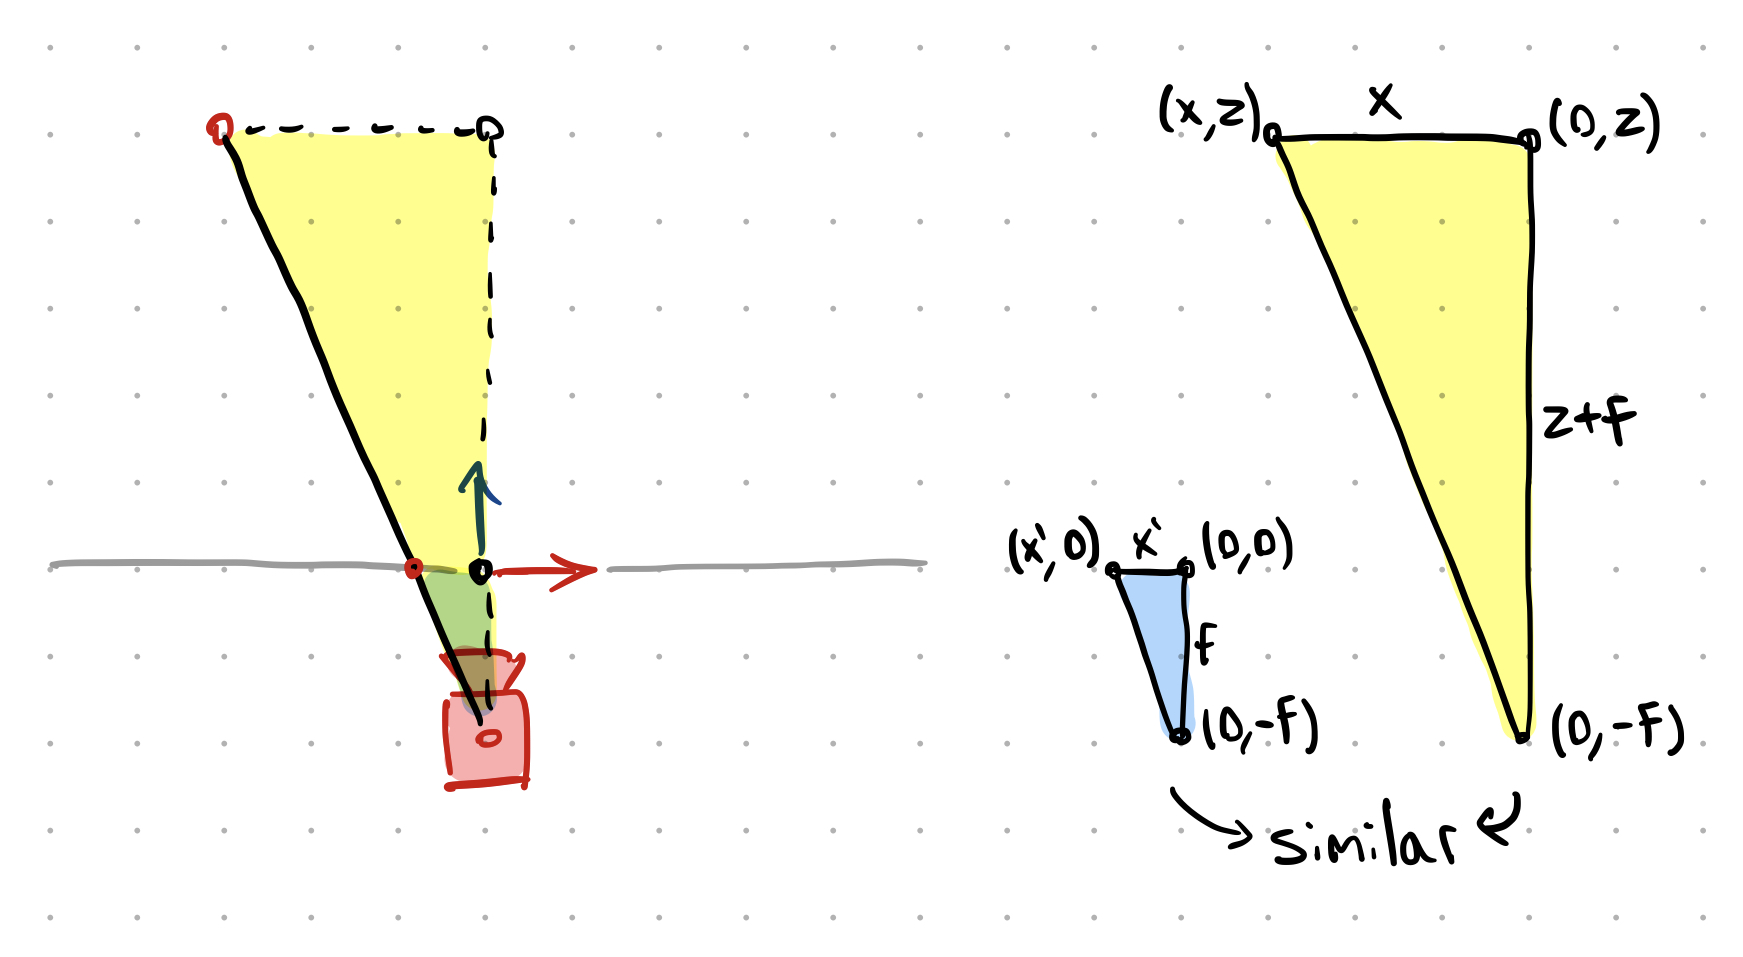 x
(x,z)
(0,z)
z+f
(x',0)
x'
(0,0)
f
(0,-f)
(0,-f)
similar